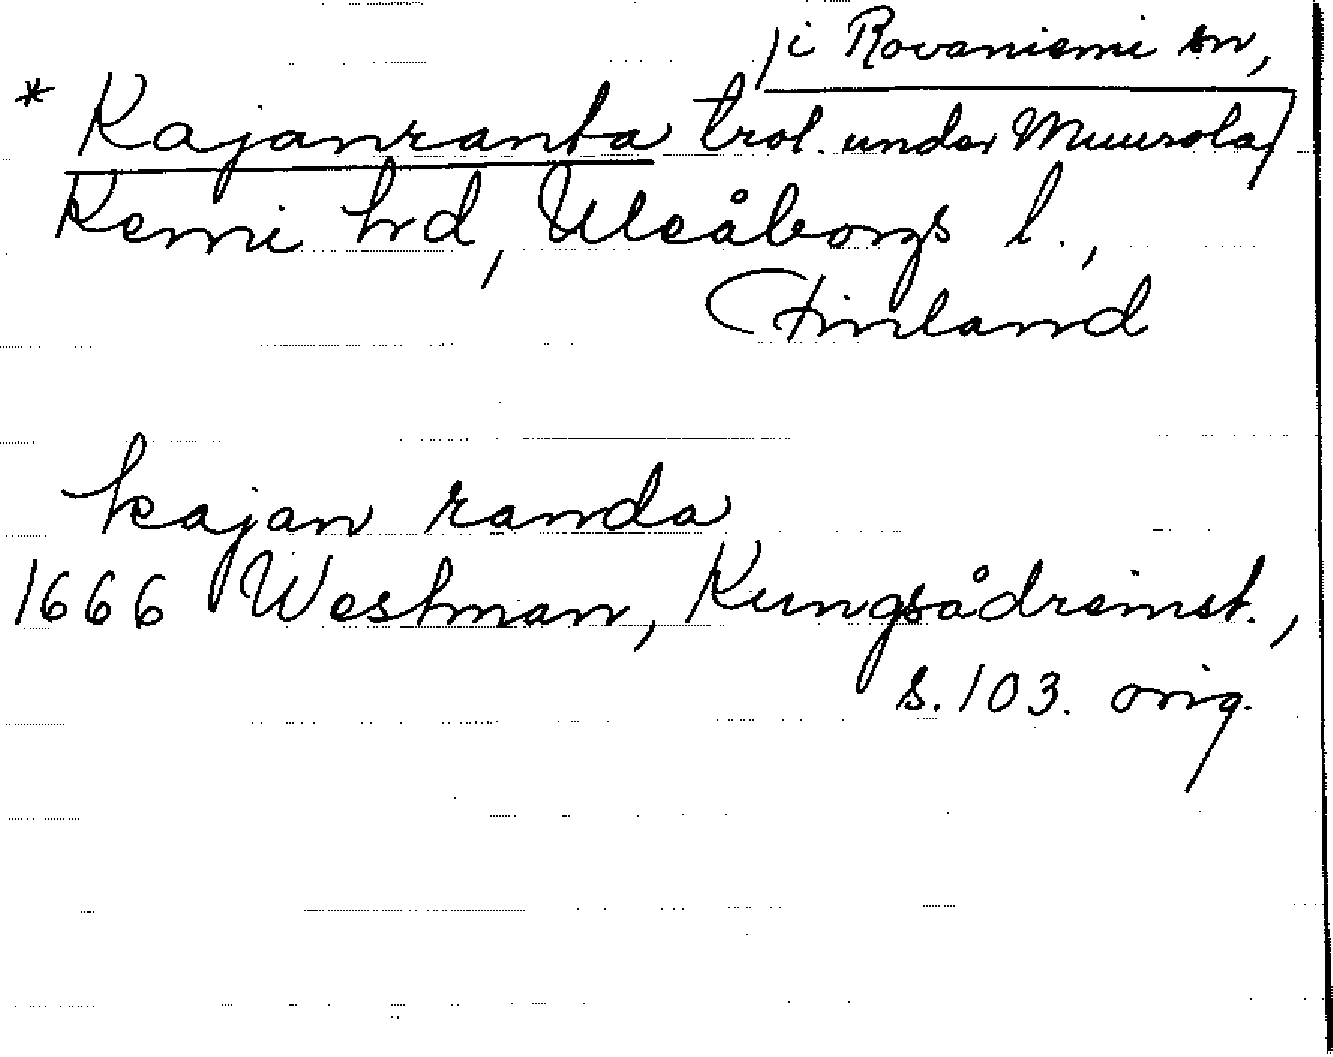 /i Rovaniemi sn,
* Kajanranta trol. under Muurola/
Kemi hd, Uleåborgs l.,
Finland
kajan randa
1666 Westman, Kungsådreinst.,
s. 103. orig.